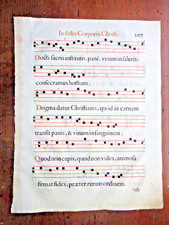 In festo Corporis Christi. 107
Docti sacris institutis, pané, vinum in salutis
consecramus hostiam.
Dogma datur Christianis, quod in carnem
transit panis, & vinum in sanguinem.
Quod non capis, quod non vides, animosa
firmat fides, præter rerum ordinem.
Sub